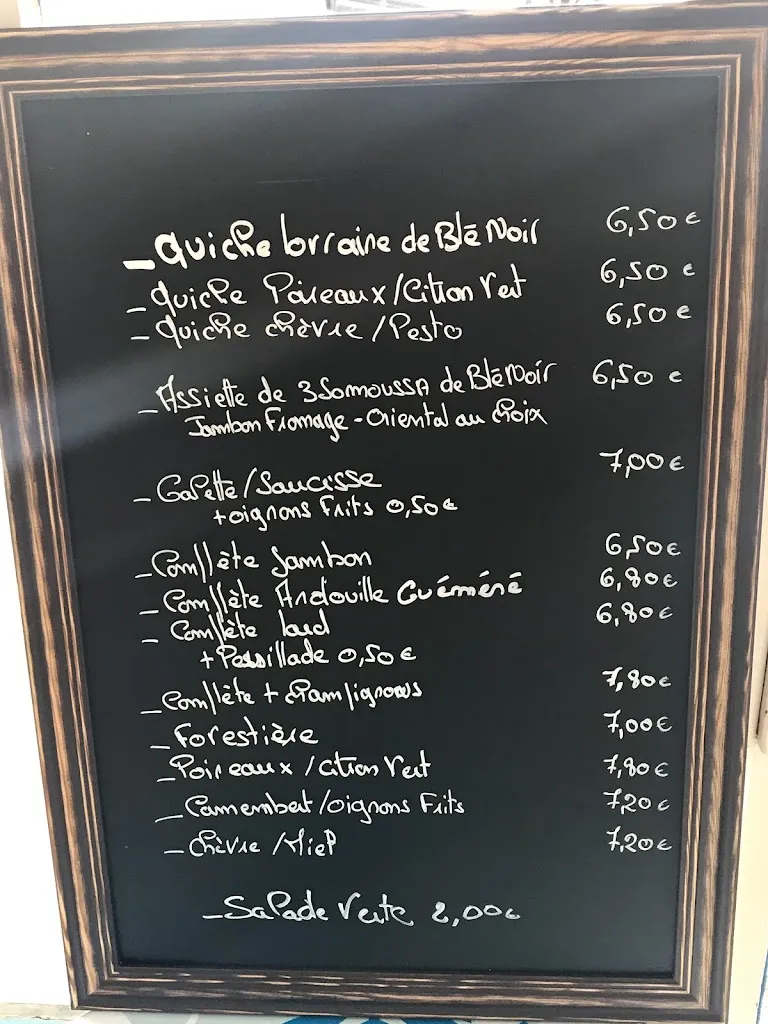 - Quiche lorraine de Blé Noir 6,50 €
- Quiche Poireaux/Citron Vert 6,50 €
- Quiche chèvre/Pesto 6,50 €
- Assiette de 3 Somoussa de Blé Noir 6,50 €
Jambon Fromage - Oriental au choix
- Galette/Saucisse 7,00 €
+ oignons Frits 0,50 €
- Complète Jambon 6,50 €
- Complète Andouille Guéméné 6,80 €
- Complète Lard 6,80 €
+ Persillade 0,50 €
- Complète + champignons 7,80 €
- Forestière 7,00 €
- Poireaux/Citron Vert 7,80 €
- Camembert/oignons Frits 7,20 €
- Chèvre/Miel 7,20 €
- Salade Verte 2,00 €